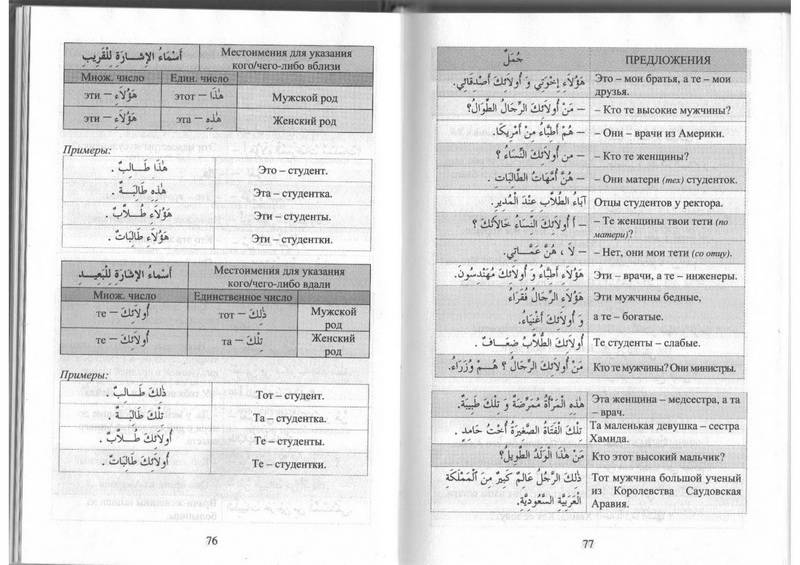 Местоимения для указания أَسْمَاءُ الإشَارَةِ لِلْقَرِيبِ
кого/чего-либо вблизи
Множ. число Един. число
эти – هٰؤُلَاءِ этот – هٰذَا Мужской род
эти – هٰؤُلَاءِ эта – هٰذِهِ Женский род
Примеры:
هٰذَا طَـالِبٌ . Это – студент.
هٰذِهِ طَالِبَـةٌ . Эта – студентка.
هٰؤُلَاءِ طُـلَّابٌ . Эти – студенты.
هٰؤُلَاءِ طَالِبَاتٌ . Эти – студентки.
Местоимения для указания أَسْمَاءُ الإشَارَةِ لِلْبَعِيـدِ
кого/чего-либо вдали
Множ. число Единственное число
те – أُولَائِكَ тот – ذٰلِكَ Мужской
род
те – أُولَائِكَ та – تِلْكَ Женский
род
Примеры:
ذٰلِكَ طَـالِبٌ . Тот – студент.
تِلْكَ طَالِبَـةٌ . Та – студентка.
أُولَائِكَ طُـلَّابٌ . Те – студенты.
أُولَائِكَ طَالِبَاتٌ . Те – студентки.
76
جُمَلٌ ПРЕДЛОЖЕНИЯ
هٰؤُلَاءِ إِخْوَتِي وَ أُولَائِكَ أَصْدِقَائِي. Это – мои братья, а те – мои
друзья.
– مَنْ أُولَائِكَ الرِّجَالُ الطِّوَالُ؟ – Кто те высокие мужчины?
– هُمْ أَطِبَّاءُ مِنْ أَمْرِيكَا. – Они – врачи из Америки.
– من أُولَائِكَ النِّسَاءُ ؟ – Кто те женщины?
– هُنَّ أُمَّهَاتُ الطَّالِبَاتِ . – Они матери (тех) студенток.
آبَاءُ الطُّلَّابِ عِنْدَ الْمُدِيرِ. Отцы студентов у ректора.
– أَ أُولَائِكَ النِّسَاءُ خَالَاتُكَ ؟ – Те женщины твои тети (по
матери)?
– لَا ، هُنَّ عَمَّـاتِي. – Нет, они мои тети (со отцу).
هٰؤُلَاءِ أَطِبَّاءُ وَ أُولَائِكَ مُهَنْدِسُونَ. Эти – врачи, а те – инженеры.
هٰؤُلَاءِ الرِّجَالُ فُقَرَاءُ Эти мужчины бедные,
وَ أُولَائِكَ أَغْنِيَاءُ. а те – богатые.
أُولَائِكَ الطُّلَّابُ ضِعَـافٌ . Те студенты – слабые.
مَنْ أُولَائِكَ الرِّجَالُ ؟ هُـمْ وُزَرَاءُ. Кто те мужчины? Они министры.
هٰذِهِ الْمَرْأَةُ مُمَرِّضَةٌ وَ تِلْكَ طَبِيبَةٌ. Эта женщина – медсестра, а та
– врач.
تِلْكَ الْفَتَاةُ الصَّغِيرَةُ أُخْتُ حَامِدٍ . Та маленькая девушка – сестра
Хамида.
مَنْ هٰذَا الْوَلَدُ الطَّوِيلُ؟ Кто этот высокий мальчик?
ذٰلِكَ الرَّجُلُ عَالِمٌ كَبِيرٌ مِنَ الْمَمْلَكَةِ Тот мужчина большой ученый
الْعَرَبِيَّةِ السَّعُودِيَّةِ. из Королевства Саудовская
Аравия.
77